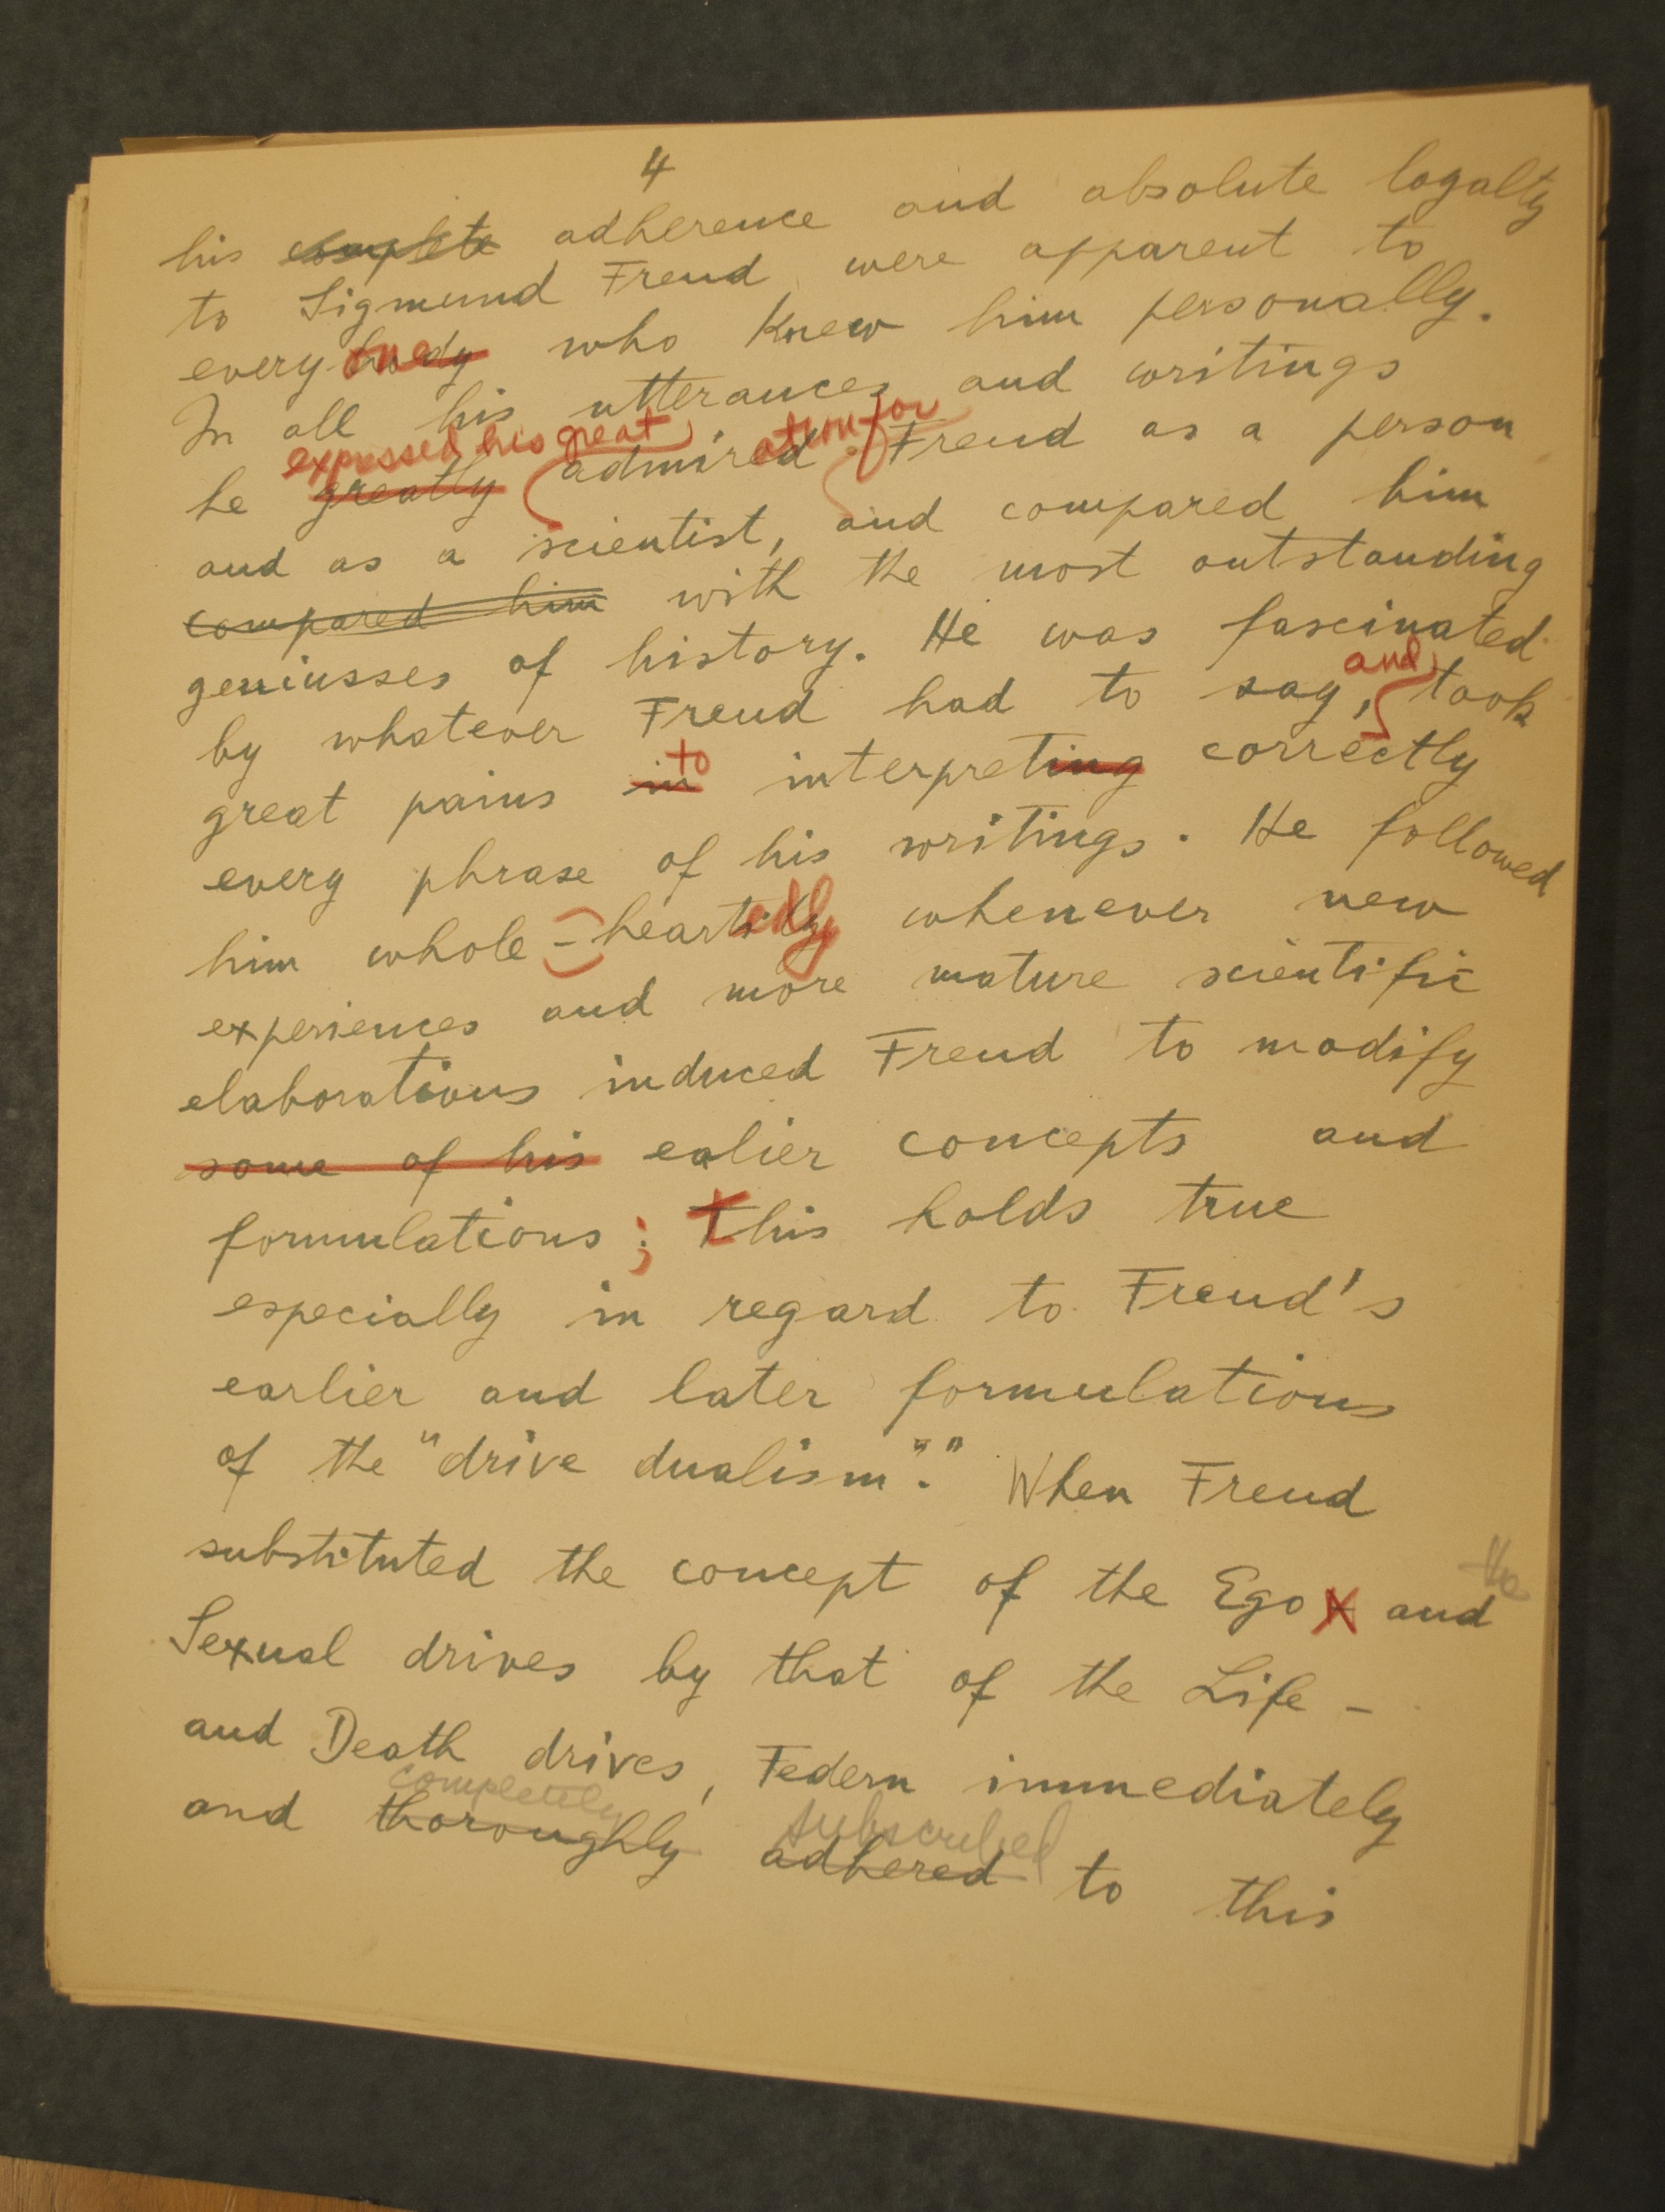 4
his complete adherence and absolute loyalty
to Sigmund Freud were apparent to
everybody one who knew him personally.
In all his utterances and writings
expressed his great ation for
he greatly admired Freud as a person
and as a scientist, and compared him
compared him with the most outstanding
geniusses of history. He was fascinated
and
by whatever Freud had to say, took
to
great pains in interpreting correctly
every phrase of his writings. He followed
him whole-heartedly whenever new
experiences and more mature scientific
elaborations induced Freud to modify
some of his ealier concepts and
formulations; this holds true
especially in regard to Freud's
earlier and later formulations
of the "drive dualism"." When Freud
the
substituted the concept of the Ego and
Sexual drives by that of the Life -
and Death drives, Federn immediately
completely subscribed
and thoroughly adhered to this